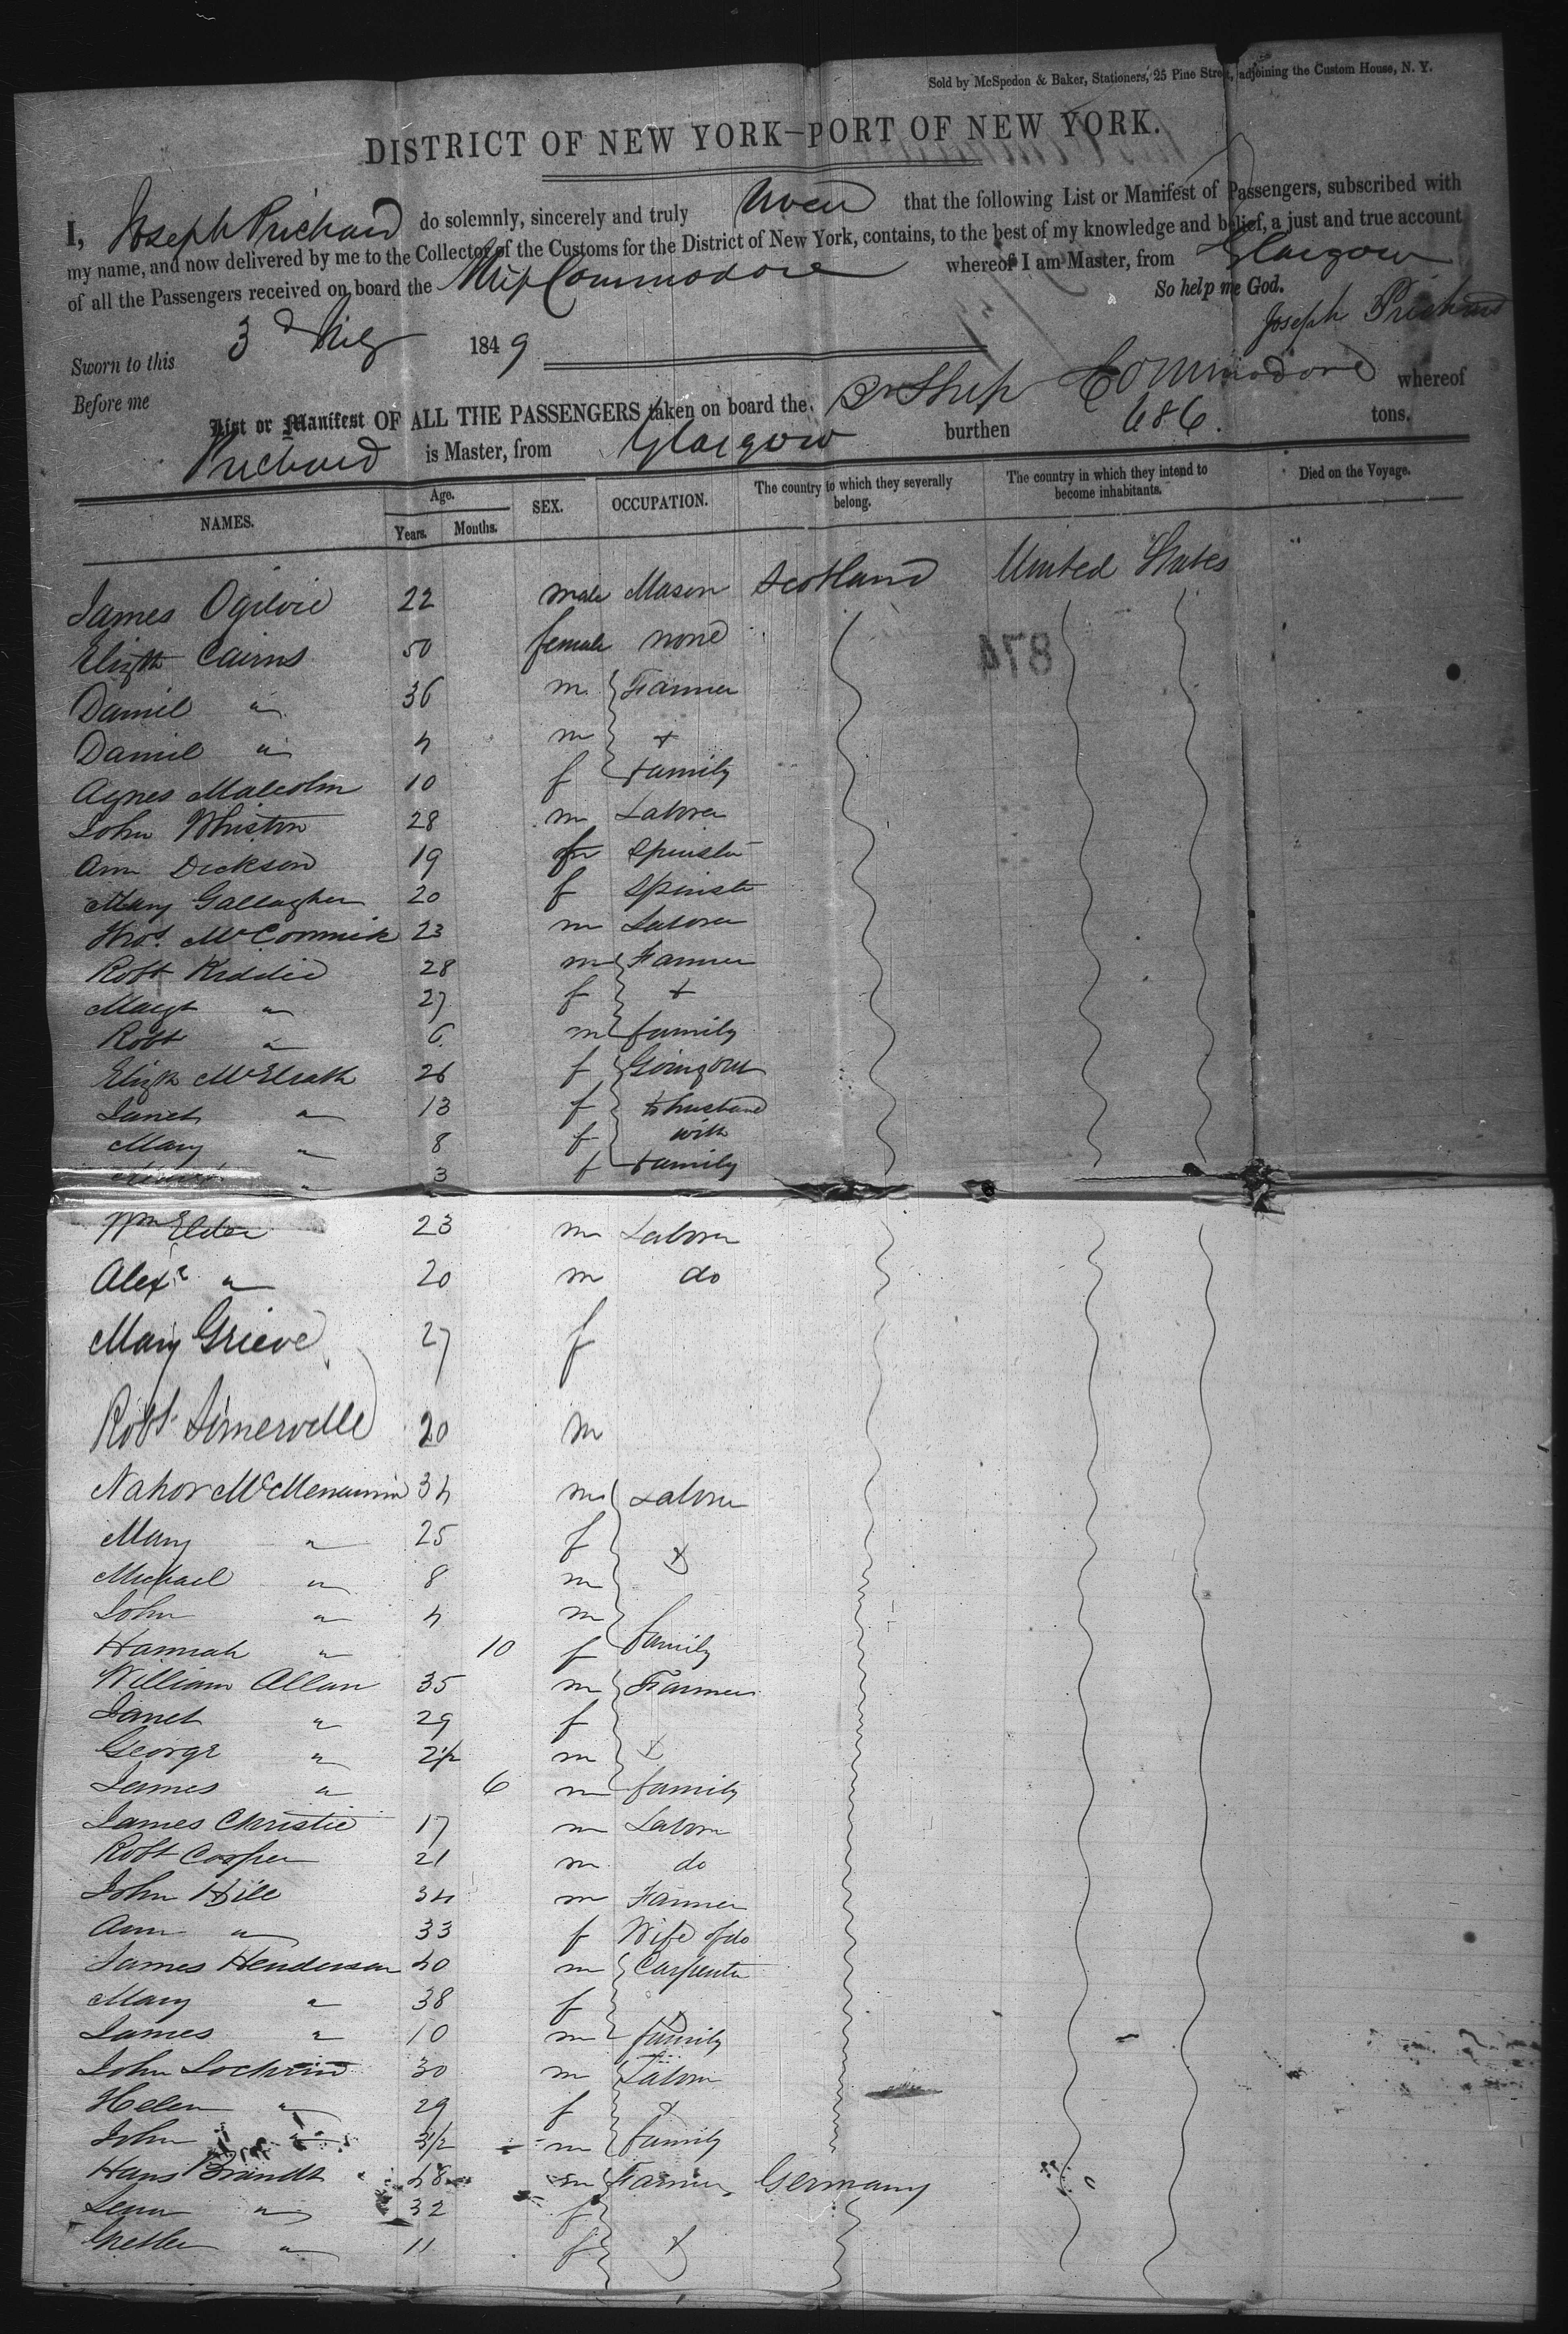 Sold by McSpedon & Baker, Stationers, 25 Pine Street, adjoining the Custom House, N. Y.
DISTRICT OF NEW YORK—PORT OF NEW YORK.
I, Joseph Prichard do solemnly, sincerely and truly swear that the following List or Manifest of Passengers, subscribed with
my name, and now delivered by me to the Collector of the Customs for the District of New York, contains, to the best of my knowledge and belief, a just and true account
of all the Passengers received on board the Ship Commodore whereof I am Master, from Glasgow
So help me God.
Joseph Prichard
Sworn to this 3 1849
Before me
List or Manifest OF ALL THE PASSENGERS taken on board the Br Ship Commodore whereof
Prichard is Master, from Glasgow burthen 686. tons.
NAMES. Age. Years. Months. SEX. OCCUPATION. The country to which they severally belong. The country in which they intend to become inhabitants. Died on the Voyage.
James Ogilvie 22 male Mason Scotland United States
Elizth Cairns 50 female none
874
Daniel " 36 m Farmer
Daniel " 4 m +
Agnes Malcolm 10 f family
John Whiston 28 m Laborer
Ann Dickson 19 f Spinster
Mary Gallagher 20 f Spinster
Thos. McCormick 23 m Laborer
Robt Kiddie 28 m Farmer
Margt " 27 f +
Robt " 6 m family
Elizth McElrath 26 f Going out
Janet " 13 f to husband
Mary " 8 f with
" 3 f family
Wm Elder 23 m Laborer
Alexr " 20 m do
Mary Grieve 27 f
Robt Simervelle 20 m
Nahor McMenamin 34 m Laborer
Mary " 25 f &
Michael " 8 m
John " 4 m
Hannah " 10 f family
William Allan 35 m Farmer
Janet " 29 f
George " 2½ m &
James " 6 m family
James Christie 17 m Laborer
Robt Cooper 21 m do
John Hill 34 m Farmer
Ann " 33 f Wife of do
James Henderson 40 m Carpenter
Mary " 38 f &
James " 10 m family
John Lochrin 30 m Laborer
Helen " 29 f &
John " 3½ m family
Hans Brandt 48 m Farmer Germany
Lena " 32 f
" 11 f &